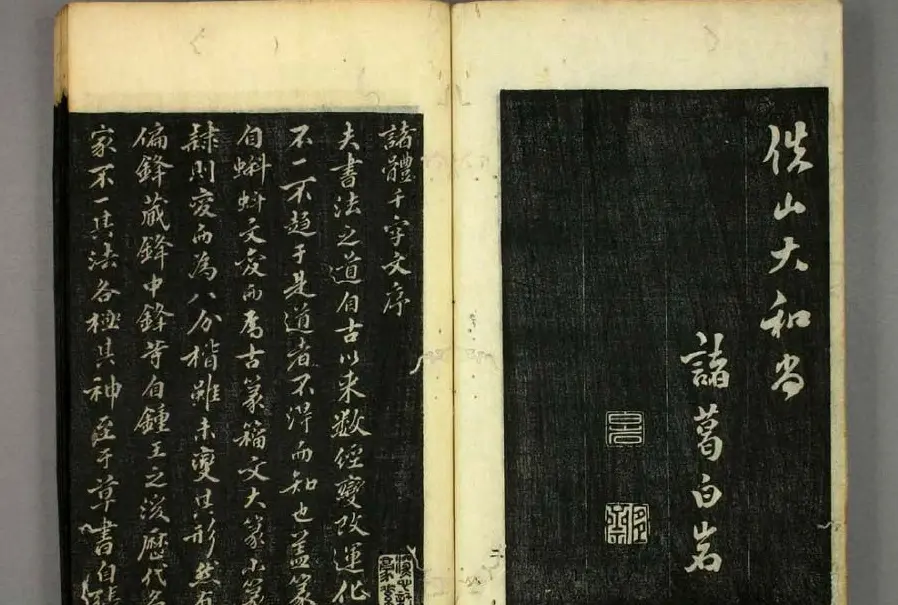 佚山大和尚
諸葛白岩
二
諸體千字文序
夫書法之道自古以来數經變改運化
不一不趨于是道者不得而知也蓋篆
自蝌蚪文变而為古篆籀文大篆小篆
隸則变而為八分楷雖未變其形然有
偏鋒藏鋒中鋒等自鍾王之後歷代名
家不一其法各極其神至于草書自張